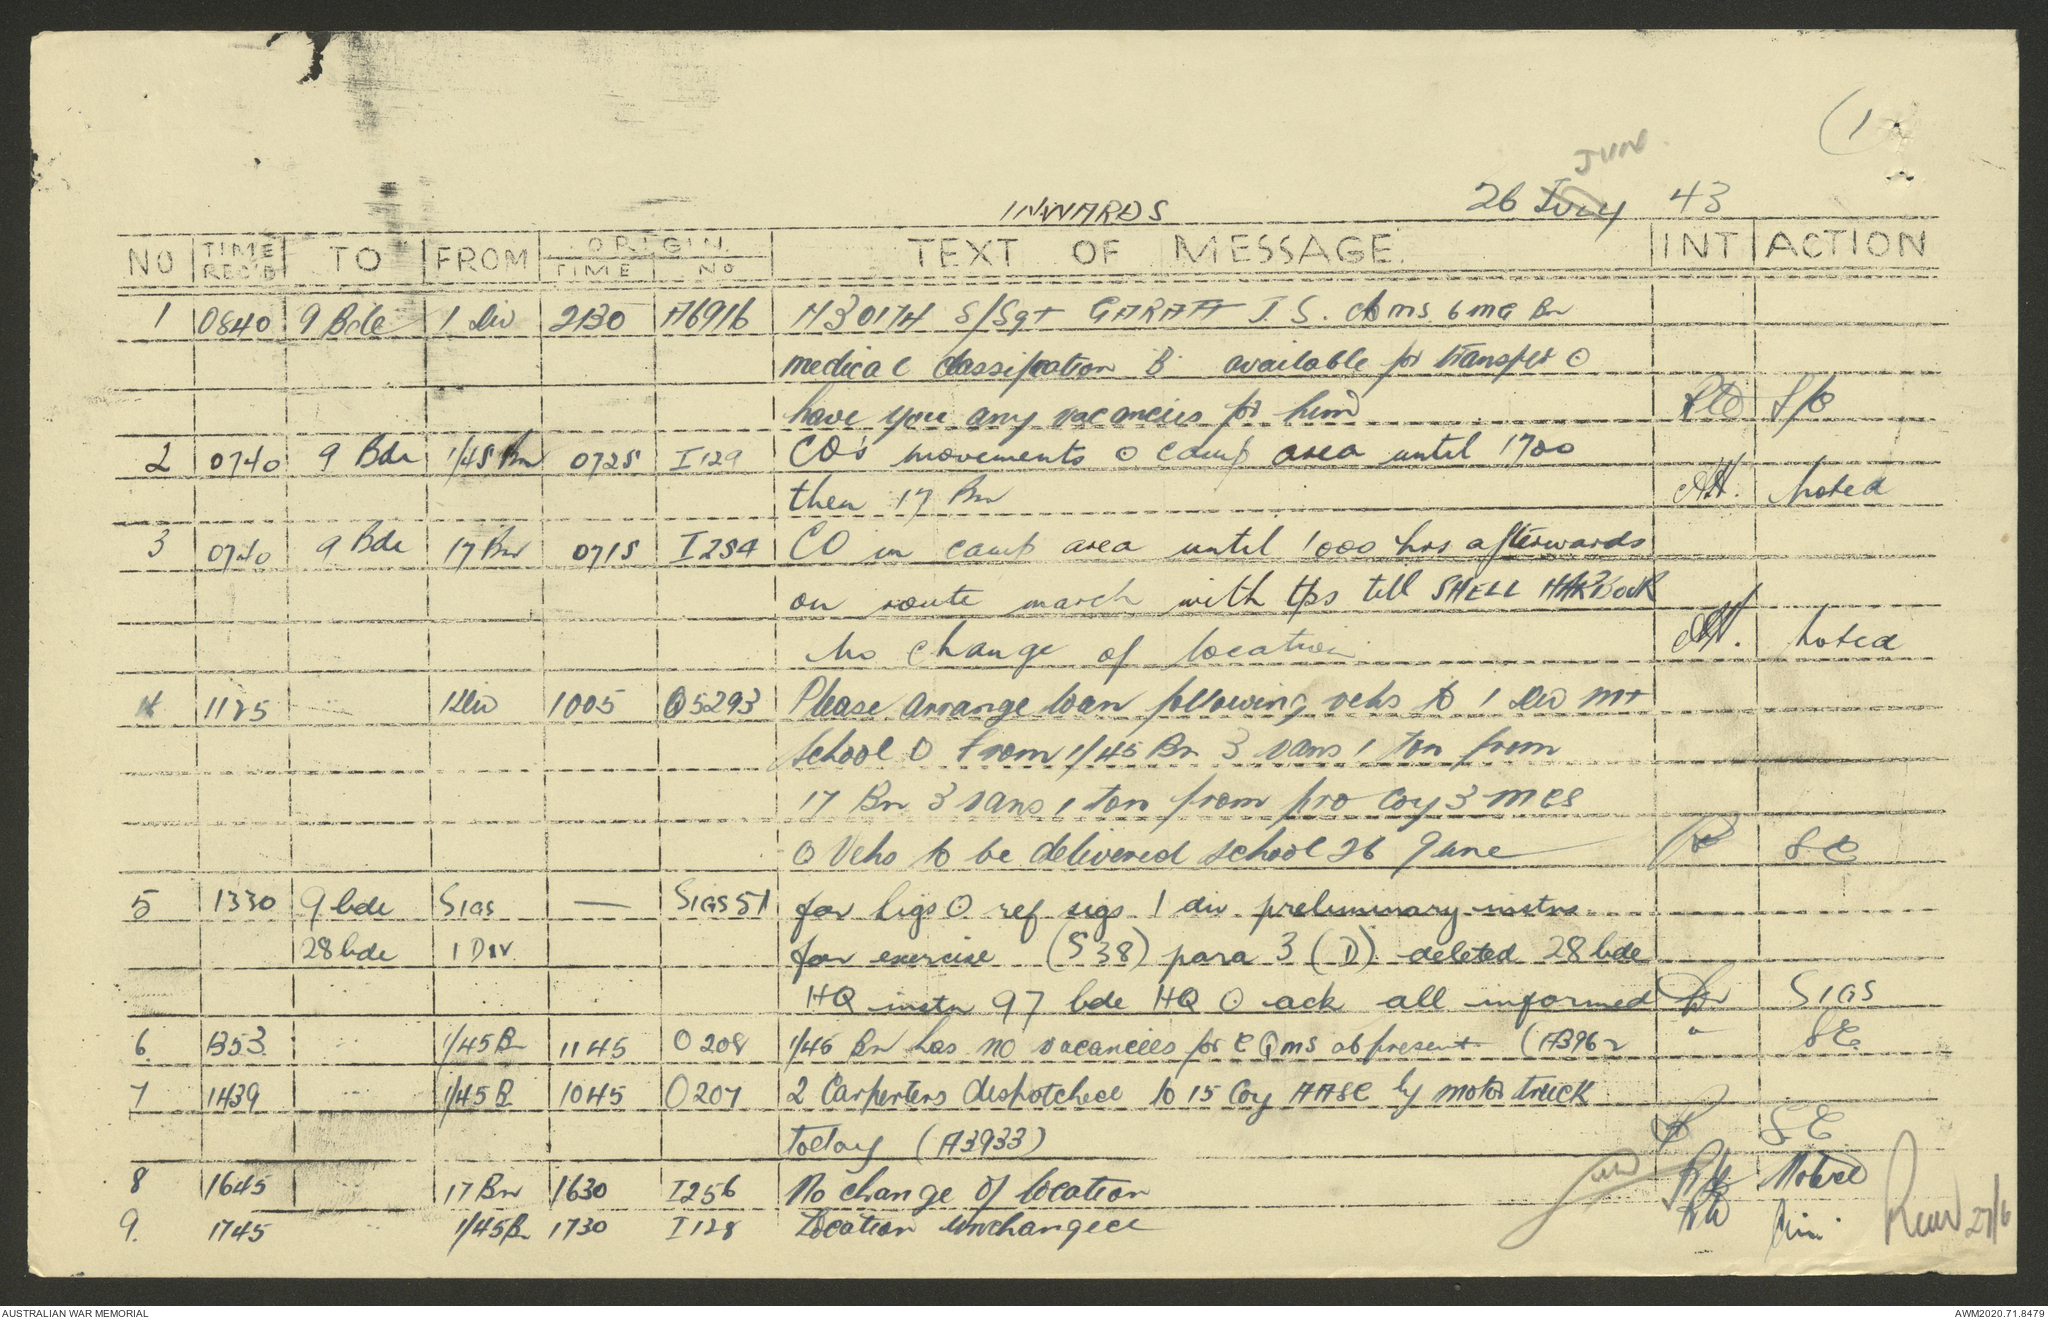 (1
JUN
26 July 43
INWARDS
NO TIME REC'D TO FROM ORIGIN TIME NO TEXT OF MESSAGE INT ACTION
1 0840 9 Bde 1 Div 2130 A6916 S/Sgt GARATT J. S. 6 MG Bn
medical classification B available for transfer ⊙
have you any vacancies for him
2 0740 9 Bde 1/45 Bn 0725 I129 CO's movements ⊙ camp area until 1700
then 17 Bn Noted
3 0740 9 Bde 17 Bn 0715 I254 CO in camp area until 1000 hrs afterwards
on route march with tps till SHELL HARBOUR
No change of location Noted
4 1125 1 Div 1005 Q5293 Please arrange loan following vehs to 1 Div MT
School O From 1/45 Bn 3 vans 1 ton from
17 Bn 3 vans 1 ton from pro Coy 3 m cs
O Vehs to be delivered school 26 June SC
5 1330 9 bde SIGS — SIGS 51 for sigs O ref sigs 1 div preliminary instns
28 bde 1 DIV for exercise (S38) para 3 (D) deleted 28 bde
HQ instn 97 bde HQ ⊙ ack all informed SIGS
6. 1353 1/45 B 1145 O 208 1/45 Bn has no vacancies for CQMS at present (A3962 " SC
7 1439 1/45 B 1045 O207 2 Carpenters despatched to 15 Coy AASC by motor truck
today (A3933) SC
8 1645 17 Bn 1630 I256 No change of location Noted
9. 1745 1/45 B 1730 I128 Location unchanged
27/6
AUSTRALIAN WAR MEMORIAL AWM2020.71.8479